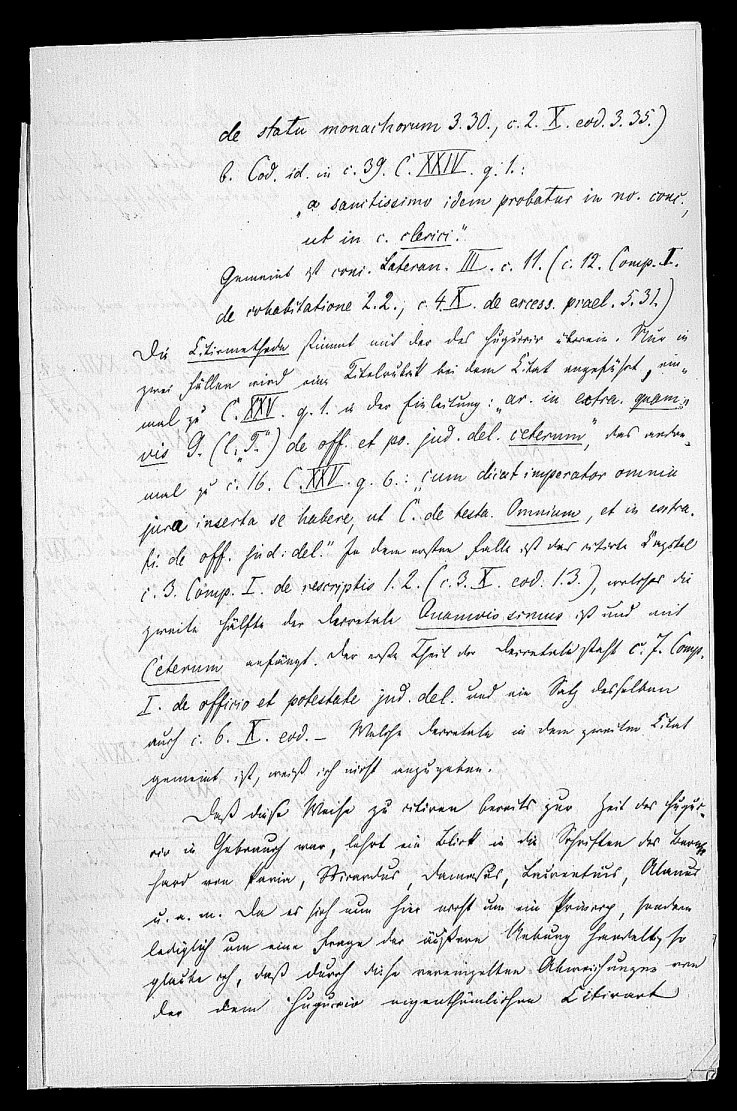 de statu monachorum 3.30., c. 2. X. eod. 3.35.)
b. Cod. id. in c. 39. C. XXIV. q. 1.:
„a sanctissimo idem probatur in no. conc.,
ut in c. clerici."
Gemeint ist conc. Lateran. III. c. 11. (c. 12. Comp. I.
de cohabitatione 2.2., c. 4 X. de excess. prael. 5.31.)
Die Citirmethode stimmt mit der des Huguccio überein. Nur in
zwei Fällen wird eine Titelrubrik bei dem Citat angeführt, ein-
mal zu C. XXV. q. 1. in der Einleitung: „ar. in extra. quam-
vis (l. „T.") de off. et po. jud. del. ceterum", das andre-
mal zu c. 16. C. XXV. q. 6.: „cum dicat imperator omnia
jura inserta se habere, ut C. de testa. Omnium, et in extra.
ti. de off. jud. del." In dem ersten Falle ist das citirte Kapitel
c. 3. Comp. I. de rescriptis 1.2. (c. 3. X. eod. 1.3.), welches die
zweite Hälfte der Decretale Quamvis simus ist und mit
Ceterum anfängt. Der erste Theil der Decretale steht c. 7. Comp.
I. de officio et potestate jud. del. und ein Satz desselben
auch c. 6. X. eod. – Welche Decretale in dem zweiten Citat
gemeint ist, weiß ich nicht anzugeben.
Daß diese Weise zu citiren bereits zur Zeit des Huguc-
cio in Gebrauch war, lehrt ein Blick in die Schriften des Bern-
hard von Pavia, Sicardus, Damasus, Laurentius, Alanus
u. a. m. Da es sich nun hier nicht um ein Princip, sondern
lediglich um eine Frage der äußern Uebung handelt, so
glaube ich, daß durch diese vereinzelten Abweichungen von
der dem Huguccio eigenthümlichen Citirart